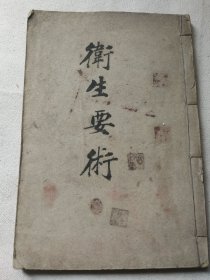 衛生要術